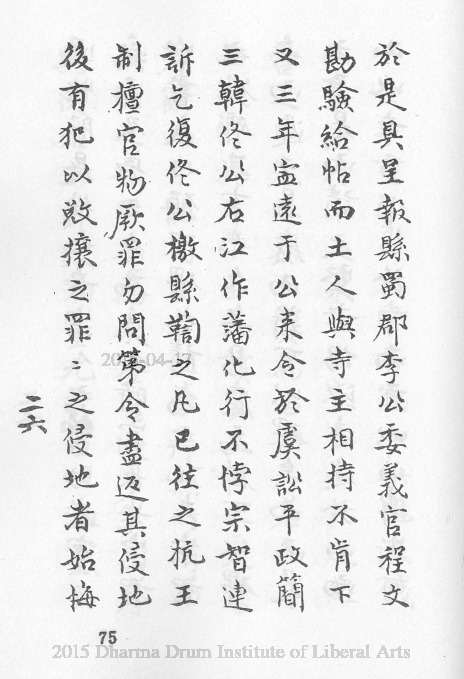 於是具呈報縣蜀郡李公委義官程文
勘驗給帖而土人與寺主相持不肯下
又三年寍遠于公来令於虞訟平政簡
三韓佟公右江作藩化行不悖宗智連
訴乞復佟公檄縣鞫之凡已往之抗王
制擅官物厥罪勿問第令盡返其侵地
後有犯以敚攘之罪〻之侵地者始悔
二六
75
2015 Dharma Drum Institute of Liberal Arts